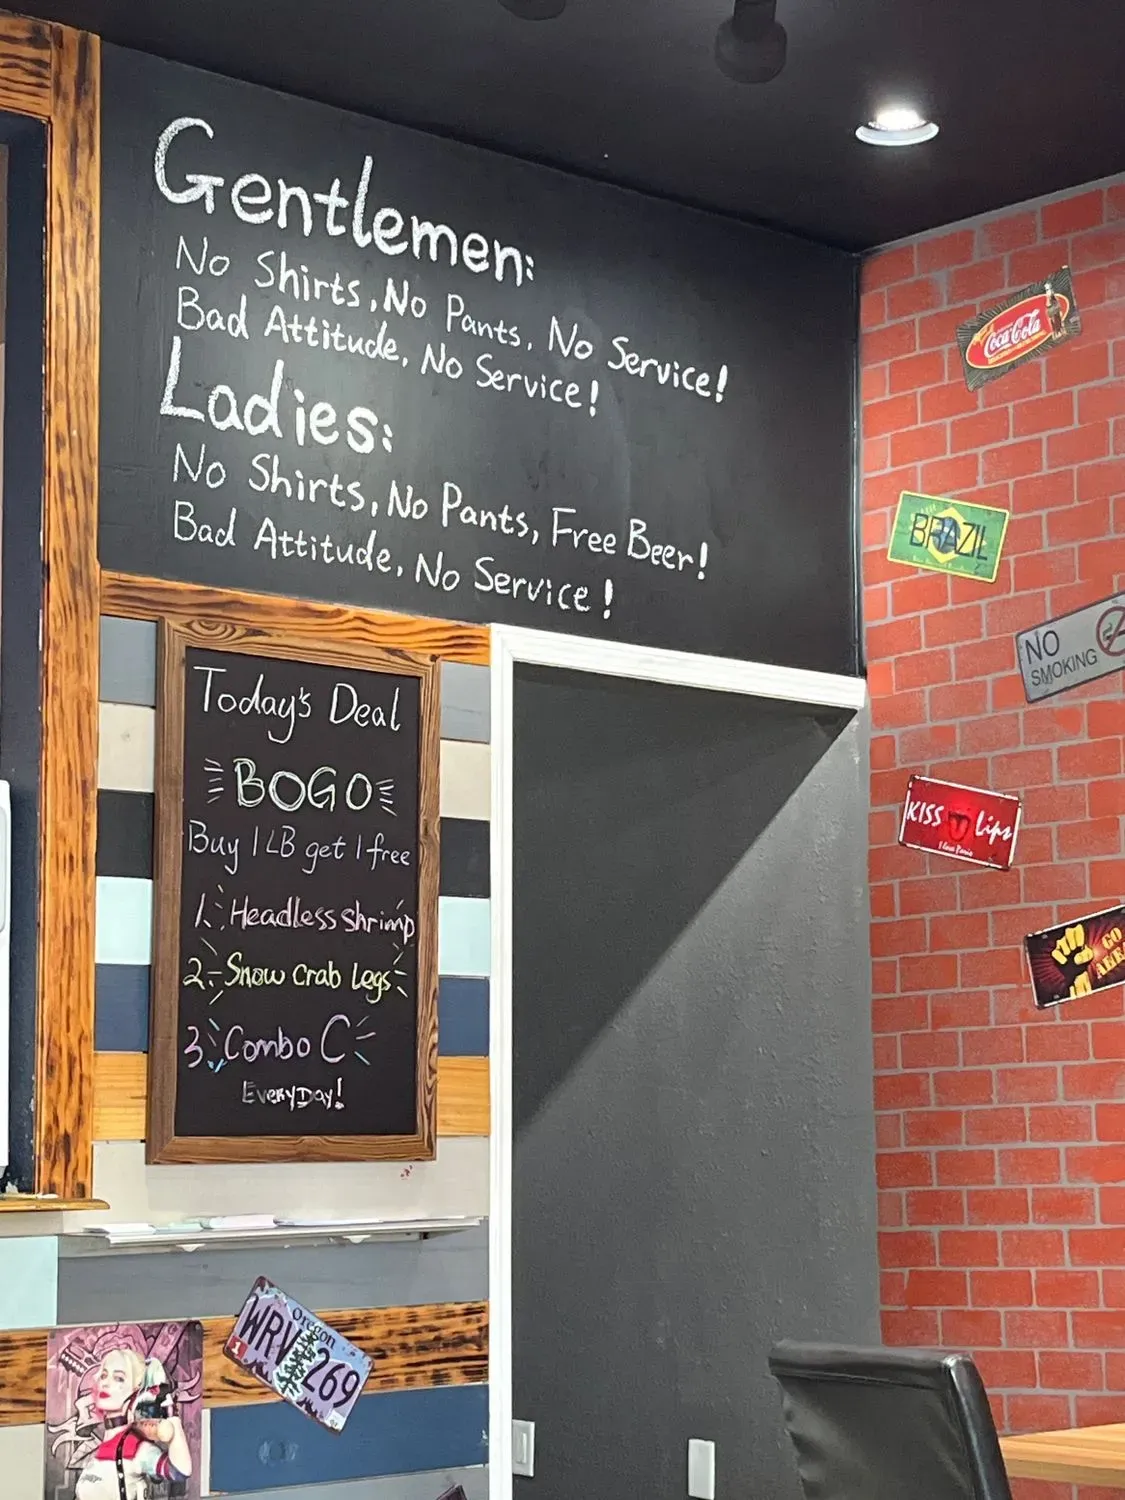 Gentlemen:
No Shirts, No Pants, No Service!
Bad Attitude, No Service!
Ladies:
No Shirts, No Pants, Free Beer!
Bad Attitude, No Service!
Today's Deal
BOGO
Buy 1 LB get 1 free
1. Headless shrimp
2. Snow Crab Legs
3 Combo C
EveryDay!
Coca-Cola
BRAZIL
NO
SMOKING
KISS Lips
I love Paris
GO
AHEA
Oregon
WRV 269
1